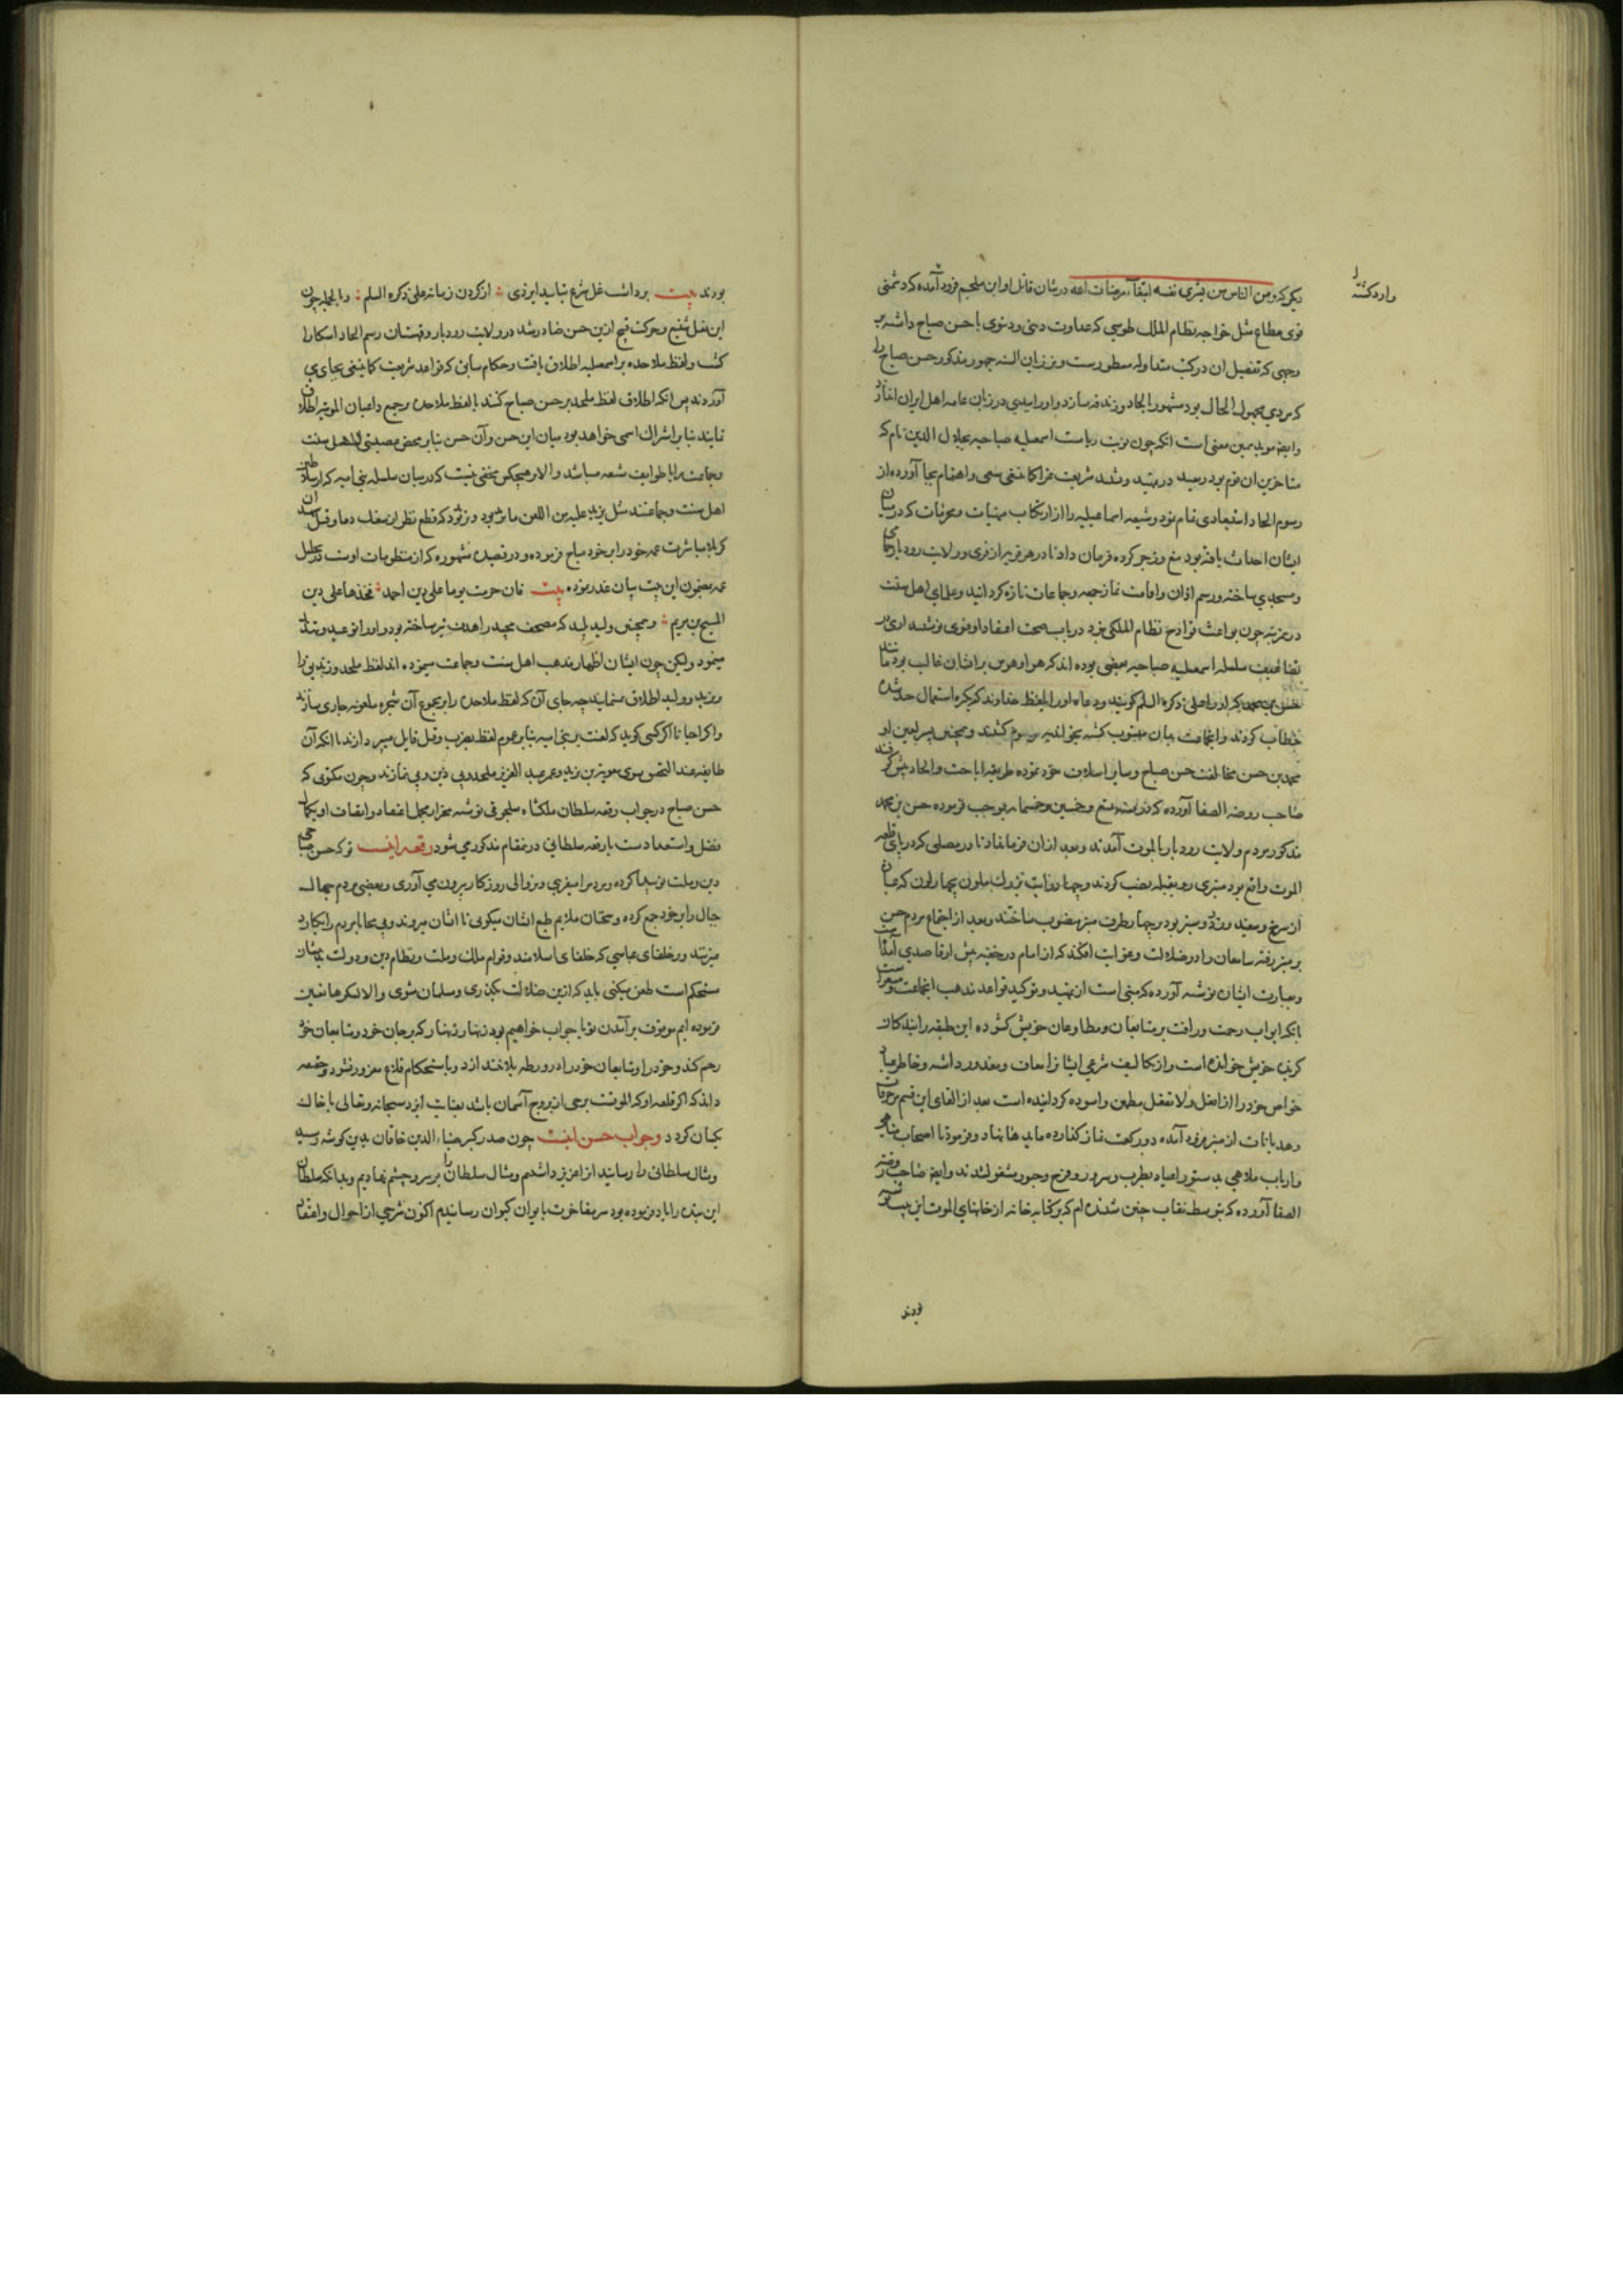 دیگر که ومن الناس من یشری نفسه ابتغاء مرضات الله در شان قاتل او ابن ملجم فرود آمده که دشمنی
وارد کشته
قوی مطاع مثل خواجه نظام الملک طوسی که عداوت دینی و دنیوی با حسن صباح داشته بر
وجهی که تفصیل ان در کتب متداوله مسطورست و بر زبان السنه جمهور مذکور حسن صباح را
که مردی مجهول الحال بود مشهور بالحاد و زندقه سازد و او را بدین در زبان عامه اهل ایران اندازد
وایضا موید همین معنی است انکه چون نوبت ریاست اسمعیلیه صباحیه بجلال الدین نام که
متاخرین ان قوم بود رسید در تمهید و تشیید شریعت غرا کما ینبغی سعی و اهتمام بجا آورده از
رسوم الحاد استبعادی تمام نمود و شیعه اسماعیلیه را از ارتکاب منهیات و محرمات که در میان
ایشان احداث یافته بود منع و زجر کرده فرمان داد تا در هر قریه از قری و ولایت رودبار جای
و مسجدی ساخته و رسم اذان و اقامت نماز جمعه و جماعات تازه کردانید و علمای اهل سنت
در مرتبه چون بواعث قوادح نظام الملکی نبود در باب صحت اعتقاد او فتوی نوشتند اری در
تضاعیف سلسله اسمعیلیه صباحیه بعضی بوده اند که هوا و هوس بر ایشان غالب بود مانند
حسن بن محمد که او را علی ذکره السلم کویند و دعاه او را بلفظ خداوند که بکره استعمال حد شده
خطاب کردند و انجماعت بدان منسوب کشته بخواندیه رسوم کشتند و همچنین پسر لعین او
محمد بن حسن مخالفت حسن صباح و سایر اسلاف خود نموده طریقه اباحت و الحاد پیش کرفتند
صاحب روضه الصفا آورده که در سنه تسع و خمسین و خمسمایه بموجب فرموده حسن بن محمد
مذکور مردم ولایت رودبار بالموت آمدند و بعد از ان فرمانداد تا در مصلی که در پای قلعه
الموت واقع بود منبری رو بقبله نصب کردند و چهار رایت بزرک ملون بچهار لون که عبارت
از سرخ و سفید و زرد و سبز بود بر چهار طرف منبر منصوب ساختند و بعد از اجتماع مردم حسن
بر منبر رفته سامعان را در ضلالت و غوایت افکند که از امام در خفیه پیش او قاصدی آمده است
و بعبارت ایشان نوشته آورده که مبنی است از تمهید و توکید قواعد مذهب انجماعت و مشعر است
بانکه ابواب رحمت و رافت بر متابعان و مطاوعان خویش کشوده این طبقه را بندکان
کزیده خویش خوانده است و از تکالیف شرعی ایشانرا معاف و معذور داشته و خاطر عباد
خواص خود را از افعل و لا تفعل مطمئن و اسوده کردانیده است بعد از القای این قسم مزخرفات
و هذیانات از منبر فرود آمده دو رکعت نماز کذارده مایدها نهاد و فرمود تا اصحاب مناهی
و ارباب ملاهی بدستور اعیاد بطرب و سرور و فرح و حبور مشغول شدند وایضا صاحب روضه
الصفا آورده که بتوسط نقاب چنین شنیده ام که بر کتابه خانه از خانهای الموت این بیت نوشته
بودند
بودند بیت برداشت غل شرع بتایید ایزدی از کردن زمانه علی ذکره السلم و بالجمله چون
این فعل شنیع و حرکت قبیح ازین حسن صادر شد در ولایت رودبار و قهستان رسم الحاد آشکارا
کشت و لفظ ملاحده بر اسمعیلیه اطلاق یافت و حکام سابق که قواعد شریعت کما ینبغی بجای می
آوردند پس انکه اطلاق لفظ ملحد بر حسن صباح کنند یا لفظ ملاحده بر جمیع داعیان الموتیه اطلاق
نمایند بنا بر اشتراک اسمی خواهد بود میان این حسن و آن حسن بنا بر محض تعصبیست که اهل سنت
وجماعت را با طوایف شیعه میباشد و الا بر هیچکس مخفی نیست که در میان سلسله بنی امیه که از سلاطین
اهل سنت و جماعتند مثل یزید علیه من اللعن ما یزید بود و یزید بود که قطع نظر از سفک دما و قتل شهیدان
کربلا مباشرت عمه خود را بر خود مباح فرموده و در قصیده مشهوره که از منظومات اوست در تحلیل
عمه بمضمون این بیت بیان عذر نموده بیت فان حرمت یوما علی دین احمد فخذها علی دین
المسیح بن مریم و همچنین ولید پلید که مصحف مجید را هدف تیر ساخته بود و او را توعید و تهدید
مینمود ولیکن چون ایشان اظهار مذهب اهل سنت و جماعت مینموده اند لفظ ملحد و زندیق را
بر یزید و ولید اطلاق ننمایند چه جای آن که لفظ ملاحده را بر مجموع آن شجره ملعونه جاری سازند
و اکر احیانا اکر کسی کوید که لعنت بر بنی امیه بنا بر عموم لفظ بضرب و قتل قایل میپردازند با انکه آن
طایفه عند التفحص سوی معویه بن یزید و عمر عبد العزیز ملحد و بی دین و بی نمازند و چون مکتوبی که
حسن صباح در جواب رقعه سلطان ملکشاه سلجوقی نوشته مخبر از مجمل اعتقاد و اتصاف او بکمال
فضل و استعدادست با رقعه سلطانی در نمقام مذکور می شود رقعه اینست تو که حسن صباحی
دین و ملت نو پیدا کرده و مردم را میفریبی و بر والی روزکار بیرون می آوری و بعضی مردم جهال
جبال را بر خود جمع کرده و سخنان ملایم طبع ایشان میکویی تا ایشان میروند و بی محابا مردم را بکارد
میزنند و بر خلفای عباسی که خلفای اسلامند و قوام ملک و ملت و نظام دین و دولت بدیشان
مستحکم است طعن میکنی باید که ازین ضلالت بکذری و مسلمان شوی و الا لشکرها تعیین
فرموده ایم موقوف بر آمدن تو یا جواب خواهیم بود زنهار زنهار که بر جان خود و متابعان خود
رحم کند و خود را و متابعان خود را در ورطه بلا نیندازد و باستحکام قلاع مغرور نشود و حقیقه
داند که اکر قلعه او که الموتست برجی از بروج آسمان باشد بعنایت ایزد سبحانه و تعالی با خاک
یکسان کردد وجواب حسن اینست چون صدر کبیر ضیاء الدین خاقان بدین کوشه رسید
و مثال سلطانی را رسانید انرا عزیز داشتیم و مثال سلطان را بر سر و چشم نهادیم و بدانکه سلطان
این بنده را یاد فرموده بود سر مفاخرت بایوان کیوان رسانیدم اکنون شرحی از احوال و اعتقاد